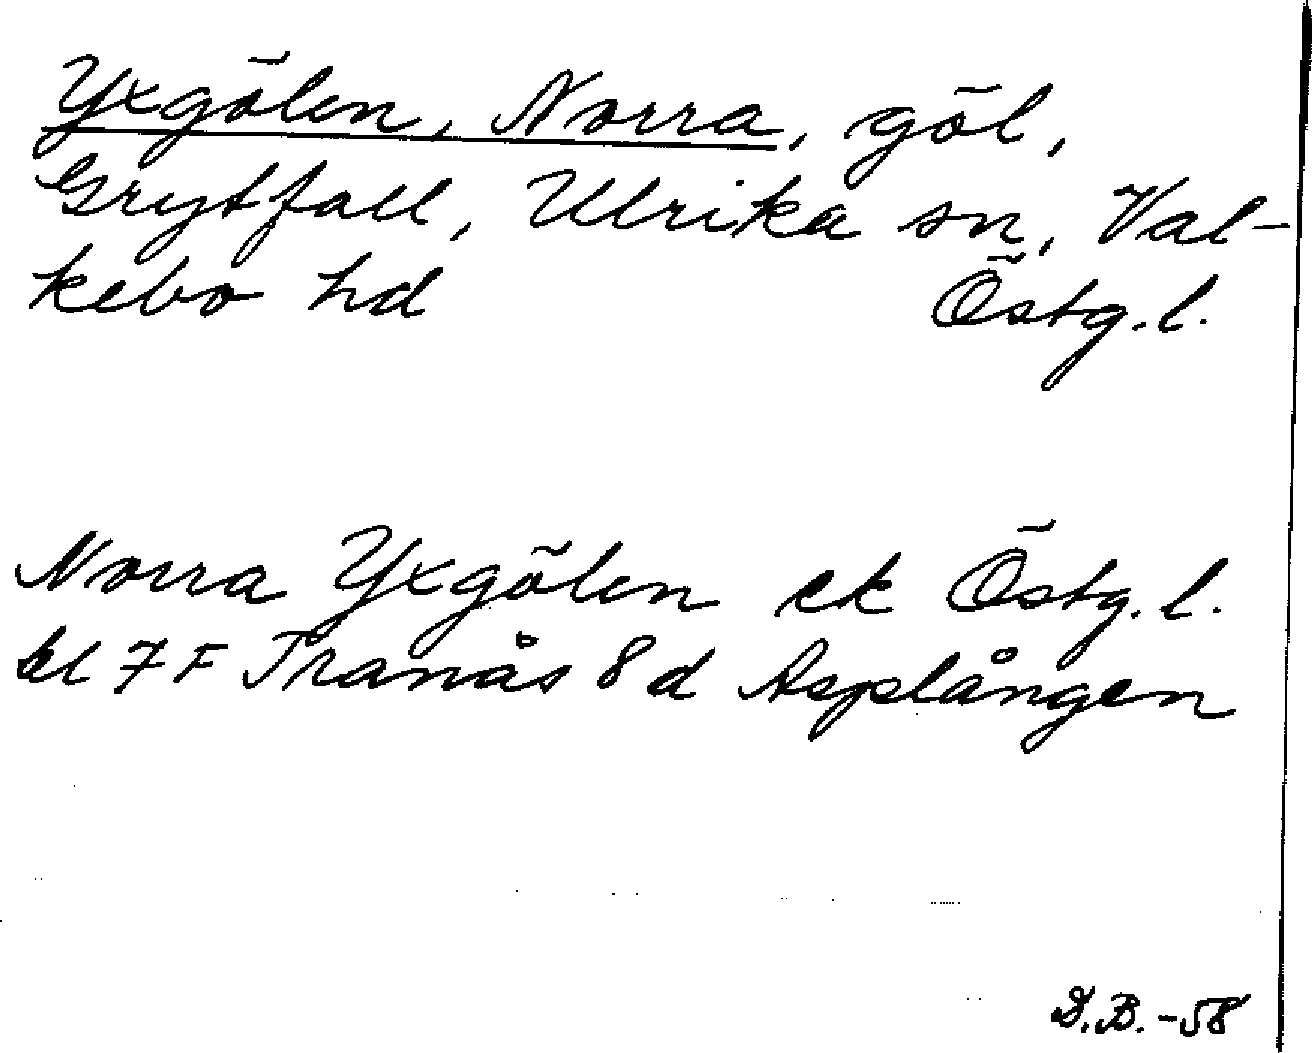 Yxgölen, Norra, göl,
Grytfall, Ulrika sn, Val-
kebo hd Östg. l.
Norra Yxgölen ek Östg. l.
bl 7 F Tranås 8 d Asplången
D.B. -58